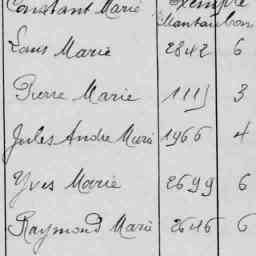 Constant Marie Exemple
Montauban
Louis Marie 2842 6
Pierre Marie 1115 3
Jules André Marie 1966 4
Yves Marie 2699 6
Raymond Marie 2646 6